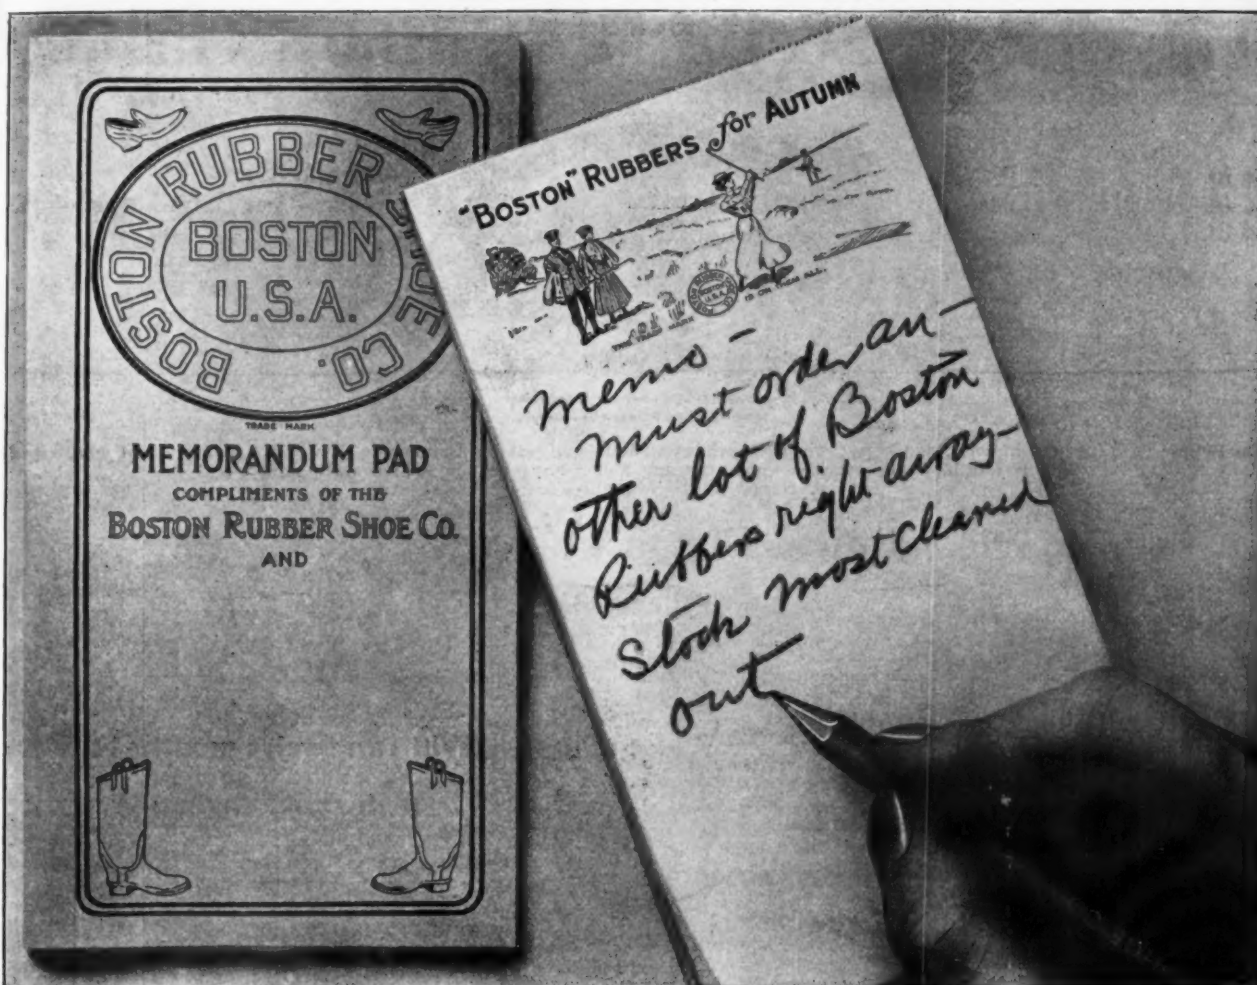 BOSTON RUBBER SHOE CO.
BOSTON
U.S.A.
TRADE MARK
MEMORANDUM PAD
COMPLIMENTS OF THE
BOSTON RUBBER SHOE CO.
AND
"BOSTON" RUBBERS for AUTUMN
THIS TRADE MARK
BOSTON
U.S.A.
IS ON THEM ALL.
Memo —
must order an-
other lot of Boston
Rubbers right away-
Stock most cleaned
out